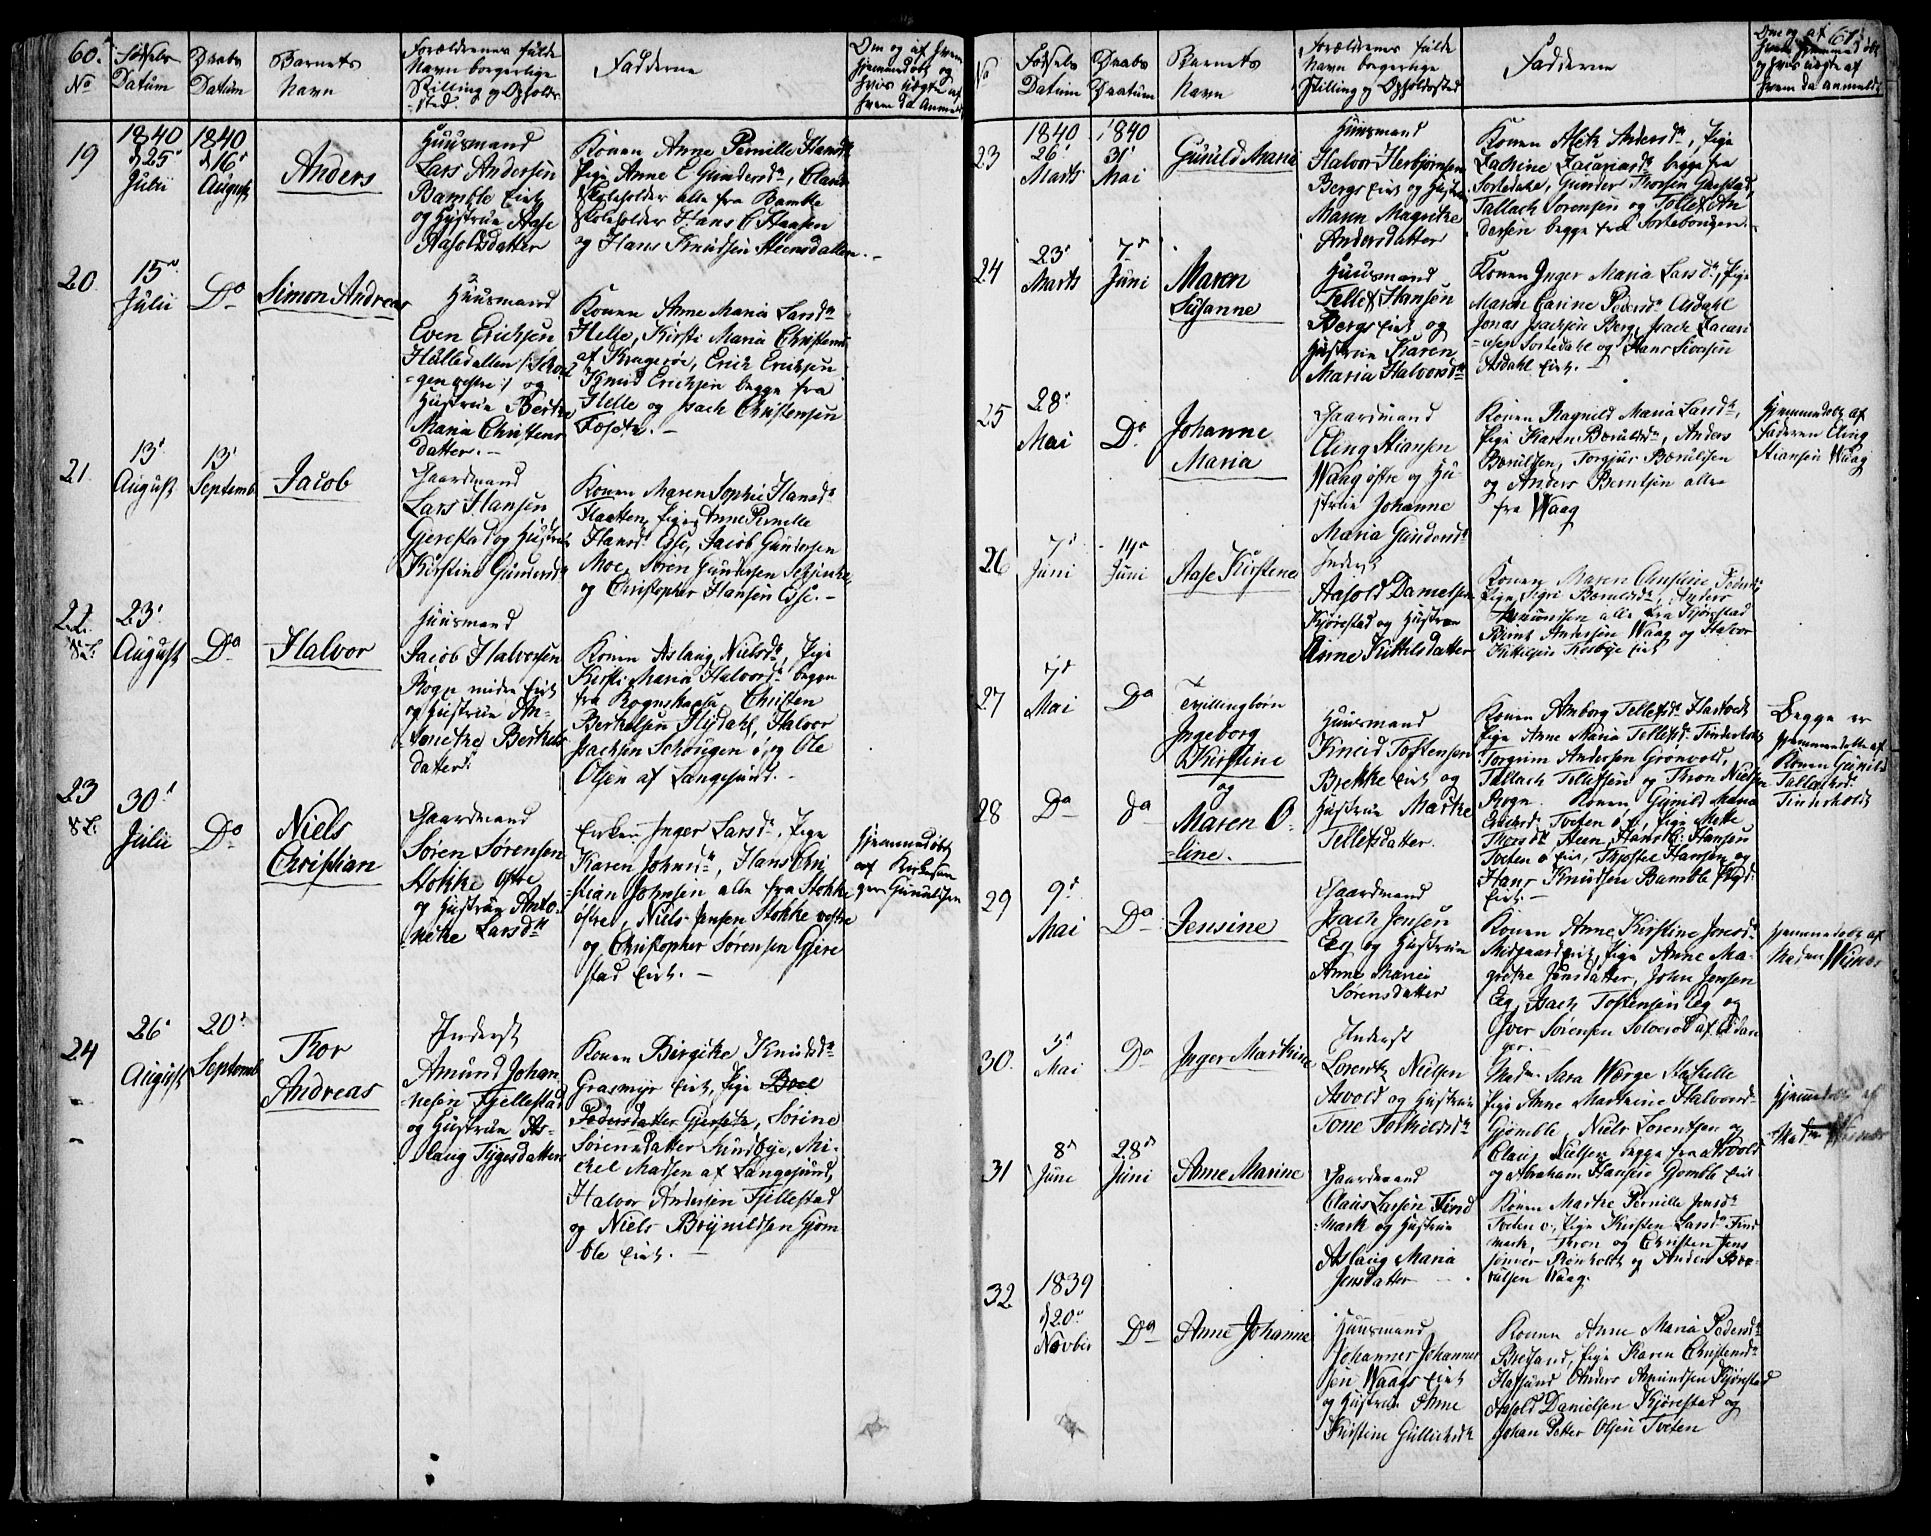 60.
No
Fødsels
Datum
Daabs
Datum
Barnets
Navn
Forældrenes fulde
Navn borgerlige
Stilling og Opholds-
sted
Fadderne
Om og af hvem
hjemmedøbt og
19
1840
d 25'
Julii
1840
d 16'
August
Anders
Huusmand
Lars Andersen
Bamble Eiet
og Hustrue Aase
Aasoldsdatter
Konen Anne Pernille Hansdr
Pige Anne E Gundersdr,
Skoleholder alle fra Bamble
Skoleholder Hans C Hansen
og Hans Knudsen Steensdallen.-
20
15de
Julii
Do
Simon Andreas
Huusmand
Even Erichsen
Hulledallen
og
Hustrue Berthe
Maria Christens
datter.-
Konen Anne Maria Larsdr
Helle, Kirsti Maria Christens
af Kragerøe, Erich Erichsen
Knud Erichsen begge fra
Helle og Isach Christensen
Fosete.-
21
13'
August
13'
Septemb
Jacob
Gaardmand
Lars Hansen
Gjerestad og Hustrue
Kirstine Gundersdr
Konen Maren Sophie Hansdr
Flaatten, Pige Anne Pernille
Hansdr Esse, Jacob Gundersen
Moe, Søren Gundersen
og Christopher Hansen Esse.-
22
23'
August
Do
Halvor
Huusmand
Jacob Halvorsen
Rogn midre Eiet
og Hustrue An-
Berthels
datter.
Konen Aslaug Nielsdr, Pige
Kirsti Maria Halvorsdr begge
fra Christen
Berthelsen Halvor
Isachsen Schougen ø, og Ole
Olsen af Langesund.-
23
30'
Julii
Do
Niels
Christian
Gaardmand
Søren Sørensen
Stokke østre
og Hustrue Anto-
nette Larsdr
Enken Inger Larsdr, Pige
Karen Johnsdr, Hans Chri
stian Johnsen alle fra Stokke
østre, Niels Jensen Stokke vestre
og Christopher Sørensen Gjere
stad Eiet.-
hjemmedøbt
af Kirkesan
ger Gunulfsen
24
26'
August
20'
Septemb
Thor
Andreas
Inderst
Amund Johan
nesen Fjellestad
og Hustrue As-
laug Tygesdatter
Konen Birgithe Knudsdr
Grasmyr Eiet, Pige Boel
Pedersdatter Gjersete, Sørine
Sørensdatter Sundbye, Mi-
chel Madsen af Langesund,
Halvor Andersen Fjellestad
og Niels Brynildsen Gjøm
ble Eiet.-
61.
No
Fødsels
Datum
Daabs
Daatum
Barnets
Navn
Forældrenes fulde
Navn borgerlige
Stilling og Opholdssted
Fadderne
Om og af
hvem hjemmedøbt
og hvis
hvem da anmeldt
23
1840
26'
Marts
1840
31'
Mai
Gunild Maria
Huusmand
Halvor Herbjørnsen
Bergs Eiet og Hustrue
Maren Magrethe
Andersdatter
Konen Aleth Andersdr, Pige
Zachine Zacariasdr begge fra
Sortedahl, Gunder Thorsen
Tallach Sorensen og Tellef An
dersen begge fra
24
23'
Marts
7de
Juni
Maren
Susanne
Huusmand
Tellef Hansen
Bergs Eiet og
Hustrue Karen
Maria Halvorsdr
Konen Inger Maria Larsdr, Pige
Maren Carine Pedersdr Asdahl
Jonas Isachsen Berg, Isach Zacari
-sen Sortedahl og Hans Siversen
Asdahl Eiet.-
25
28'
Mai
Do
Johanne
Maria
Gaardmand
Eling Stiansen
Waag østre og Hu-
strue Johanne
Maria Gundersdr
Konen Ragnild Maria Larsdr,
Pige Karen Bærulsdr, Anders
Bærulsen, Torgjur Bærulsen
og Anders Berntsen alle
fra Waag
hjemmedøbt af
Faderen Eling
Stiansen Waag
26
7'
Juni
14de
Juni
Aase Kirstene
Inderst
Aasold Danielsen
Kjørestad og Hustrue
Anne Kittelsdatter
Konen Maren Christine Pedersdr,
Pige Siri Bærulsdr, Anders
Amundsen alle fra Kjørestad
Bernt Andersen Waag og Halvor
Kittelsen Eiet
27
7de
Mai
Do
Tvillingbørn
Ingeborg
Kirstine
og
28
Do
do
Maren O-
line.
Huusmand
Knud Tostensen
Brekke Eiet og
Hustrue Marthe
Tellefsdatter.
Konen Amborg Tellefsdr
Pige Anne Maria Tellefsdr Tinderholt
Torgrim Andersen Grønvold,
Tallach Tellefsen og Thron Nielsen
Rogn. Konen Gunild Maria
Tveten ø E, Pige Mette
Thorsdr Steen, Hans Chr. Hansen
Tveten ø Eiet, Hansen og
Hans Knudsen Bamble
Eiet.-
Begge er
hjemmedøbte af
Konen Gunild
Tallachsdr
Tinderholt
29
9de
Mai
Do
Jensine
Gaardmand
Isach Jensen
Eeg og Hustrue
Anne Maria
Sørensdatter
Konen Anne Kirstine Jensdr
Midgaard Eiet, Pige Anne Ma-
grethe Jensdatter, John Jensen
Eeg, Isach Tostensen Eeg og
Iver Sørensen af Edan
ger.-
hjemmedøbt af
Madm Wisnes
30.
3'
Mai
Do
Inger Marthine
Inderst
Lorentz Nielsen
Asvold og Hustrue
Tone Torkildsdr
Madm. Sara Wærge Stathelle
Pige Anne Marthine Halvorsdr
Gjømble, Niels Lorentsen og
Claus Nielsen begge fra Asvold
og Abraham Hansen Gjømble Eiet
hjemmedøbt af
Madm Wisnes
31
8de
June
28de
Juni
Anne Marine
Gaardmand
Claus Larsen Find
mark og Hustrue
Aslaug Maria
Jensdatter
Konen Marthe Pernille Jensdr
Tveten ø., Pige Kirsten Larsdr Find
mark, Thron og Christen Jens
sønner Rønholt og Anders Bær-
ulsen Waag.
32
1839
d 20de
Novbr
Do
Anne Johanne
Huusmand
Johannes Johannes
sen Waags Eiet
og Hustrue Anne
Kirstine Gullichsdr
Konen Anne Maria Pedersdr
Breisand, Pige Karen Christensdr
Hafsund Anders Amundsen Kjørestad
Aasold Danielsen Kjørestad og
Johan Petter Olsen Tveten